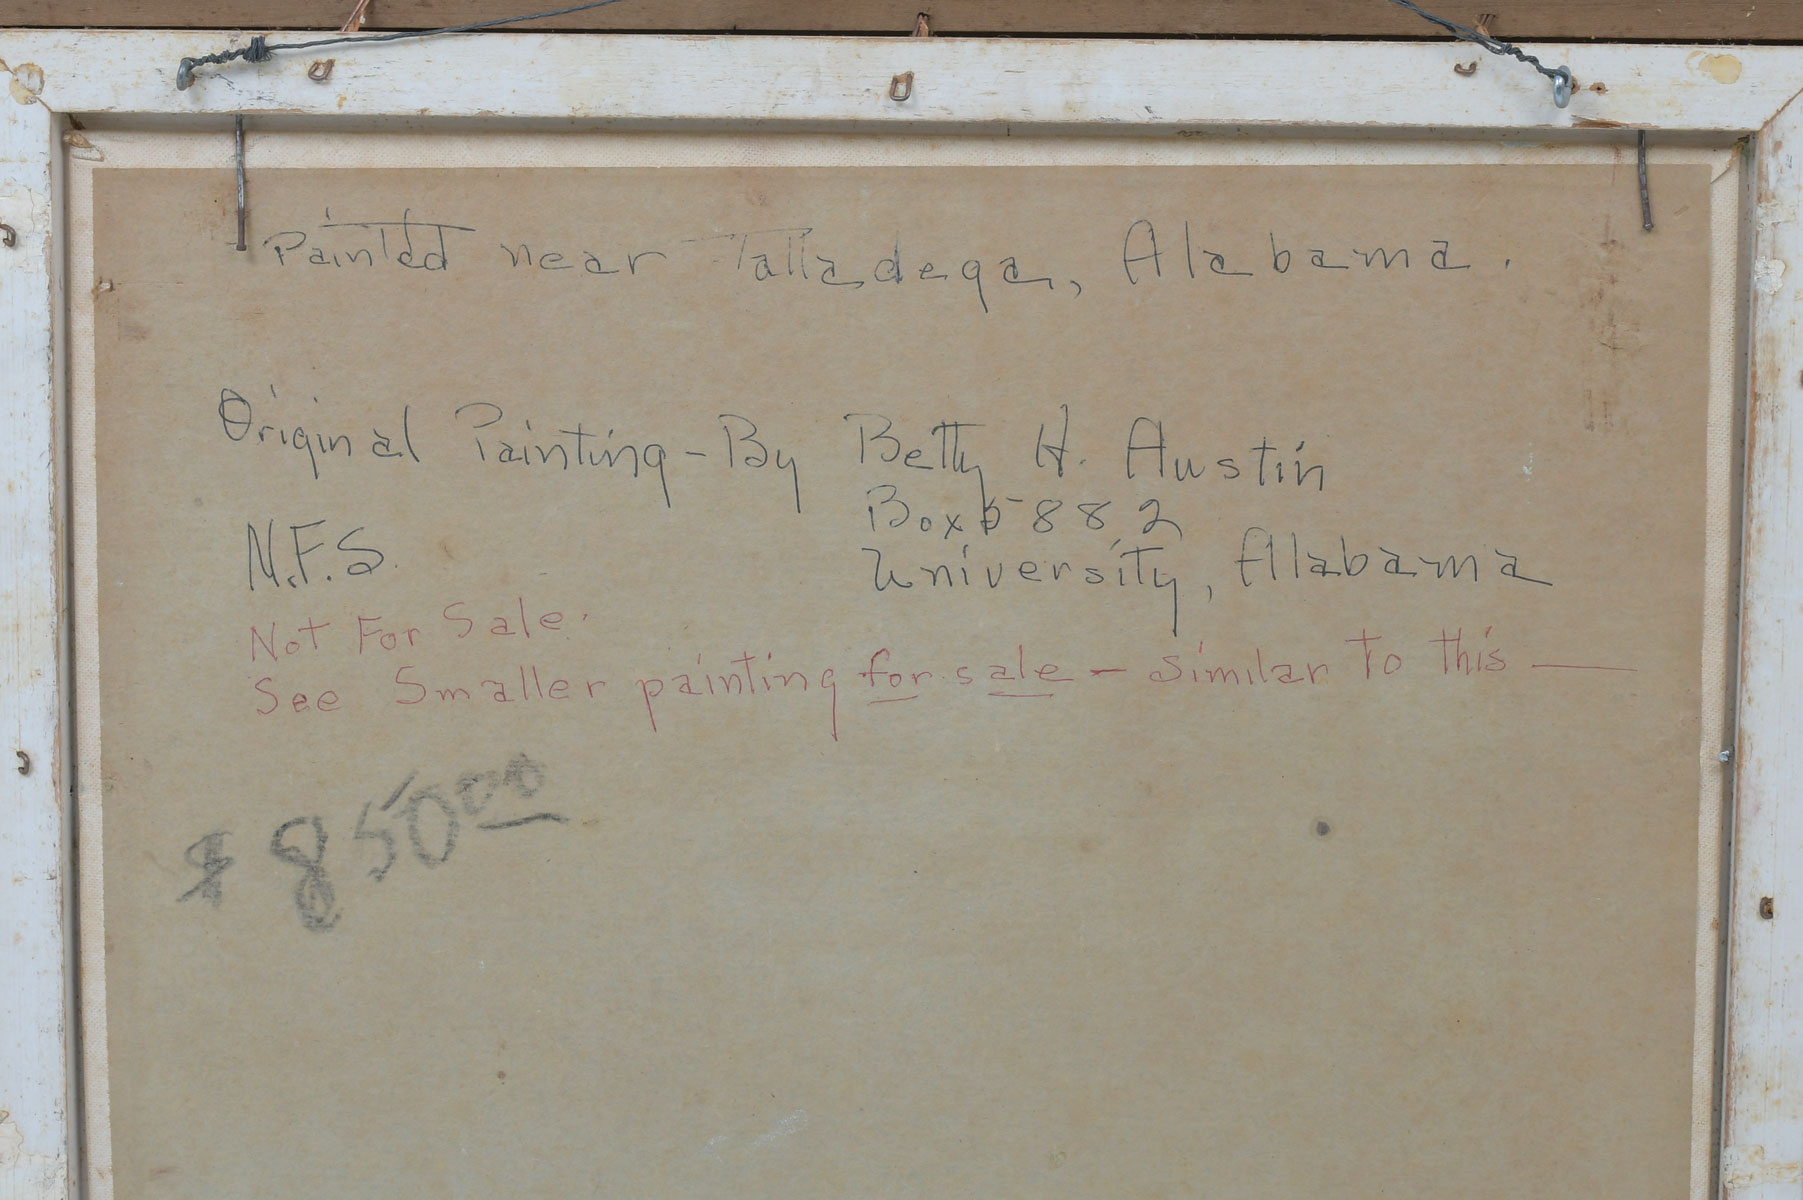 Painted near Talladega, Alabama.
Original Painting - By Betty H. Austin
Box 5882
N.F.S.
University, Alabama
Not For Sale.
See Smaller painting for sale - Similar To This —
$850.00